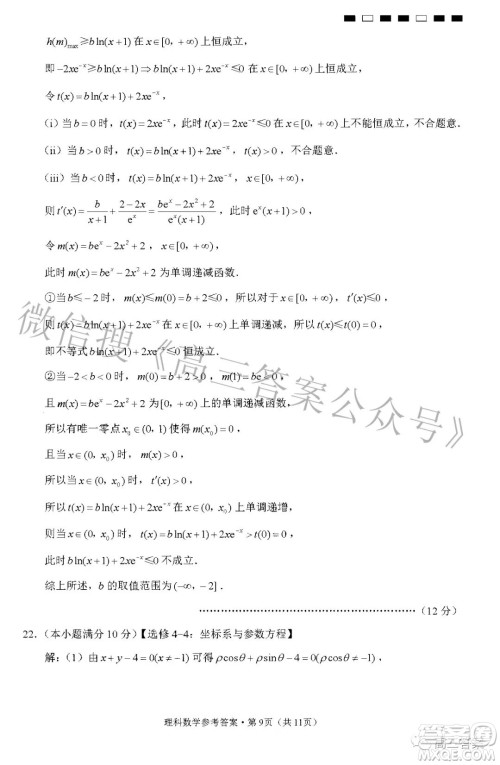 h(m)max≥b ln(x+1) 在 x∈[0, +∞) 上恒成立，
即 -2xe^{-x}≥b ln(x+1)⇒b ln(x+1)+2xe^{-x}≤0 在 x∈[0, +∞) 上恒成立，
令 t(x)=b ln(x+1)+2xe^{-x}，
(i) 当 b=0 时，t(x)=2xe^{-x}，此时 t(x)=2xe^{-x}≤0 在 x∈[0, +∞) 上不能恒成立，不合题意．
(ii) 当 b>0 时，t(x)=b ln(x+1)+2xe^{-x}，t(x)>0，不合题意．
(iii) 当 b<0 时，t(x)=b ln(x+1)+2xe^{-x}，x∈[0, +∞)，
则 t′(x)=b/(x+1)+(2-2x)/e^x=(be^x-2x²+2)/(e^x(x+1))，此时 e^x(x+1)>0，
令 m(x)=be^x-2x²+2，x∈[0, +∞)，
此时 m(x)=be^x-2x²+2 为单调递减函数．
①当 b≤-2 时，m(x)≤m(0)=b+2≤0，所以对于 x∈[0, +∞)，t′(x)≤0，
则 t(x)=b ln(x+1)+2xe^{-x} 在 x∈[0, +∞) 上单调递减，所以 t(x)≤t(0)=0，
即不等式 b ln(x+1)+2xe^{-x}≤0 恒成立．
②当 -2<b<0 时，m(0)=b+2>0，m(1)=be<0，
且 m(x)=be^x-2x²+2 为单调递减函数，
所以有唯一零点 x₀∈(0, 1) 使得 m(x₀)=0，
且当 x∈(0, x₀) 时，m(x)>0，
所以当 x∈(0, x₀) 时，t′(x)>0，
所以 t(x)=b ln(x+1)+2xe^{-x} 在 x∈(0, x₀) 上单调递增，
则当 x∈(0, x₀) 时，t(x)=b ln(x+1)+2xe^{-x}>t(0)=0，
此时 b ln(x+1)+2xe^{-x}≤0 不成立．
综上所述，b 的取值范围为 (-∞, -2]．
……………………………………………………（12 分）
22．（本小题满分 10 分）【选修 4-4：坐标系与参数方程】
解：（1）由 x+y-4=0(x≠-1) 可得 ρcosθ+ρsinθ-4=0(ρcosθ≠-1)，
理科数学参考答案·第 9 页（共 11 页）
微信搜《高三答案公众号》